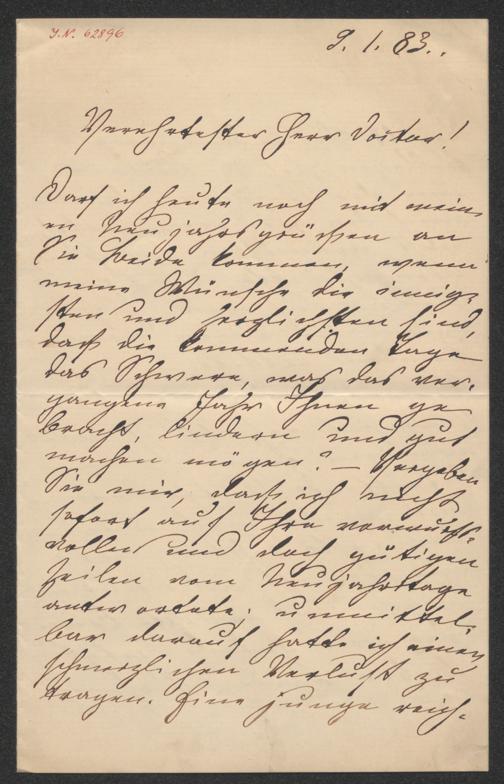 J.N. 62896
9. 1. 83.
Verehrtester Herr Doctor!
Darf ich heute noch mit mein-
en Neujahrsgrüßen an
Sie beide kommen, wenn
meine Wünsche die innig-
sten und herzlichsten sind,
daß die kommenden Tage
das Schwere, was das ver-
gangene Jahr Ihnen ge
bracht, lindern und gut
machen mögen? – Vergeben
Sie mir, daß ich nicht
sofort auf Ihre vorwurfs-
vollen und doch gütigen
Zeilen vom Neujahrstage
antwortete; unmittel-
bar darauf hatte ich einen
schmerzlichen Verlust zu
tragen. Eine junge reich-